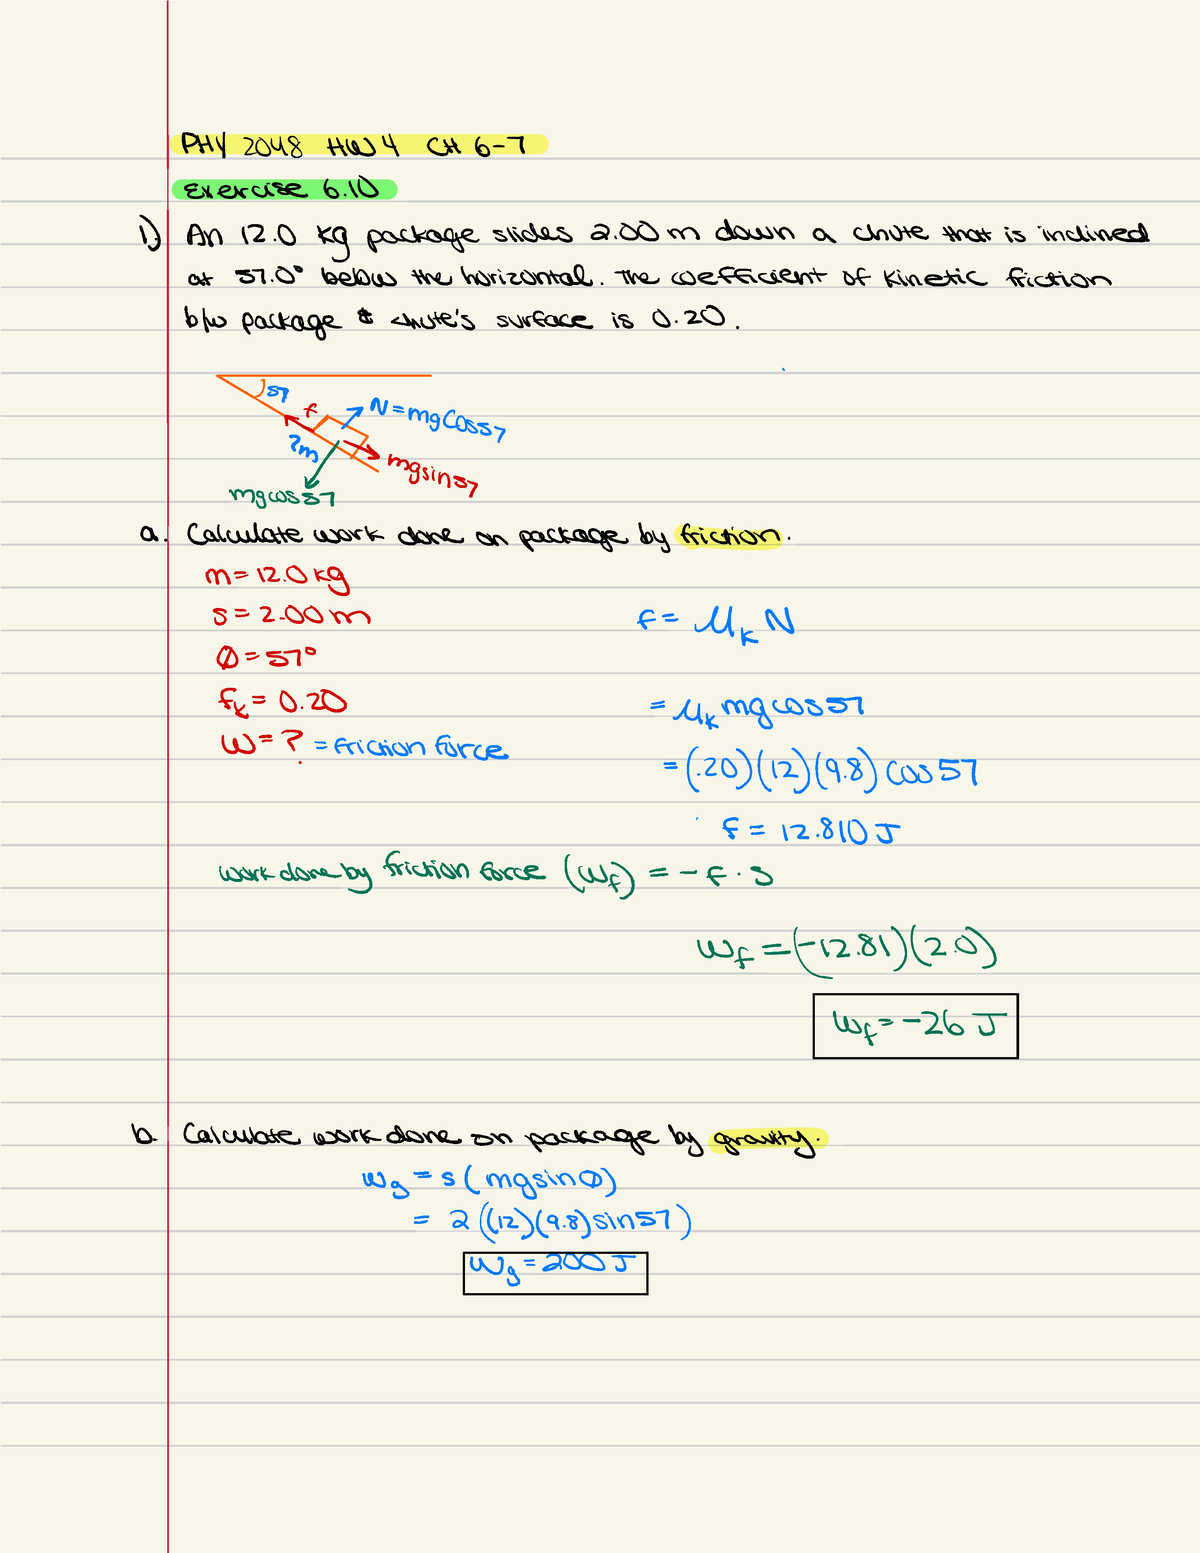 PHY 2048 HW 4 CH 6-7
Exercise 6.10
1) An 12.0 kg package slides 2.00 m down a chute that is inclined
at 57.0° below the horizontal. The coefficient of kinetic friction
b/w package & chute's surface is 0.20.
57
f
N = mg cos57
2m
mgsin57
mgcos57
a. Calculate work done on package by friction.
m = 12.0 kg
s = 2.00 m
Ø = 57°
fk = 0.20
W = ? = friction force
f = μk N
= μk mg cos 57
= (.20)(12)(9.8) cos 57
f = 12.810 J
work done by friction force (Wf) = -f · s
Wf = (-12.81)(2.0)
Wf = -26 J
b. Calculate work done on package by gravity.
Wg = s (mgsinØ)
= 2 ((12)(9.8) sin57)
Wg = 200 J